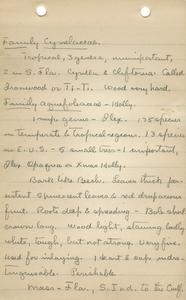 Family Cyrillaceae.
Tropical, 3 genera, unimportant,
2 in S. Fla. Cyrilla & Cliftonia. Called
Ironwood or Ti-Ti. Wood very hard.
Family Aquifoliaceae - Holly.
1 imp. genus - Ilex. 175 species
in Temperate & tropical regions. 13 species
in E. U.S. - 5 small trees - 1 important,
Ilex Opaca or Xmas Holly.
Bark like Beech. Leaves thick per-
sistent spinescent leaves & red drupaceous
fruit. Roots deep & spreading - Bole short
crown long. Wood light, staining badly
white, tough, but not strong. Very fine.
Used for inlaying. Heart & sap indis-
tinguishable. Perishable.
Mass - Fla., S. Ind. to the Gulf.